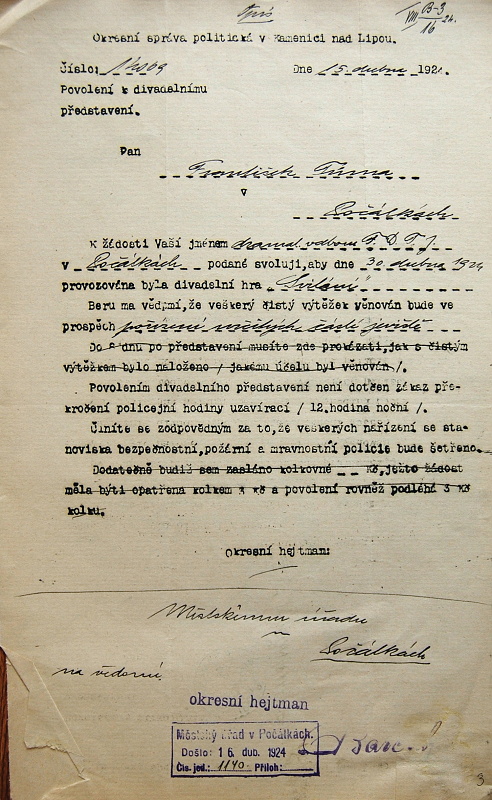 Opis
VIII B-3/16 24.
Okresní správa politická v Kamenici nad Lipou.
Číslo: 14069 Dne 15. dubna 1924.
Povolení k divadelnímu
představení.
Pan
František Tůma
v
Počátkách
K žádosti Vaší jménem dramat. odboru F.D.T.J.
v Počátkách podané svoluji, aby dne 30. dubna 1924
provozována byla divadelní hra „Svítání"
Beru na vědomí, že veškerý čistý výtěžek věnován bude ve
prospěch pořízení určitých částí jeviště
Do 8 dnu po představení musíte zde prokázati, jak s čistým
výtěžkem bylo naloženo / jakému účelu byl věnován /.
Povolením divadelního představení není dotčen zákaz pře-
kročení policejní hodiny uzavírací / 12. hodina noční /.
Činíte se zodpovědným za to, že veskerých nařízení se sta-
noviska bezpečnostní, požární a mravnostní policie bude šetřeno.
Dodatečně budiž sem zasláno kolkovné Kč, ježto žádost
měla býti opatřena kolkem Kč a povolení rovněž podléhá 3 Kč
kolku.
Okresní hejtman:
Městskému úřadu
v
Počátkách
na vědomí.
okresní hejtman
Městský úřad v Počátkách.
Došlo: 16. dub. 1924
Čís. jed.: 1140 Příloh:
3